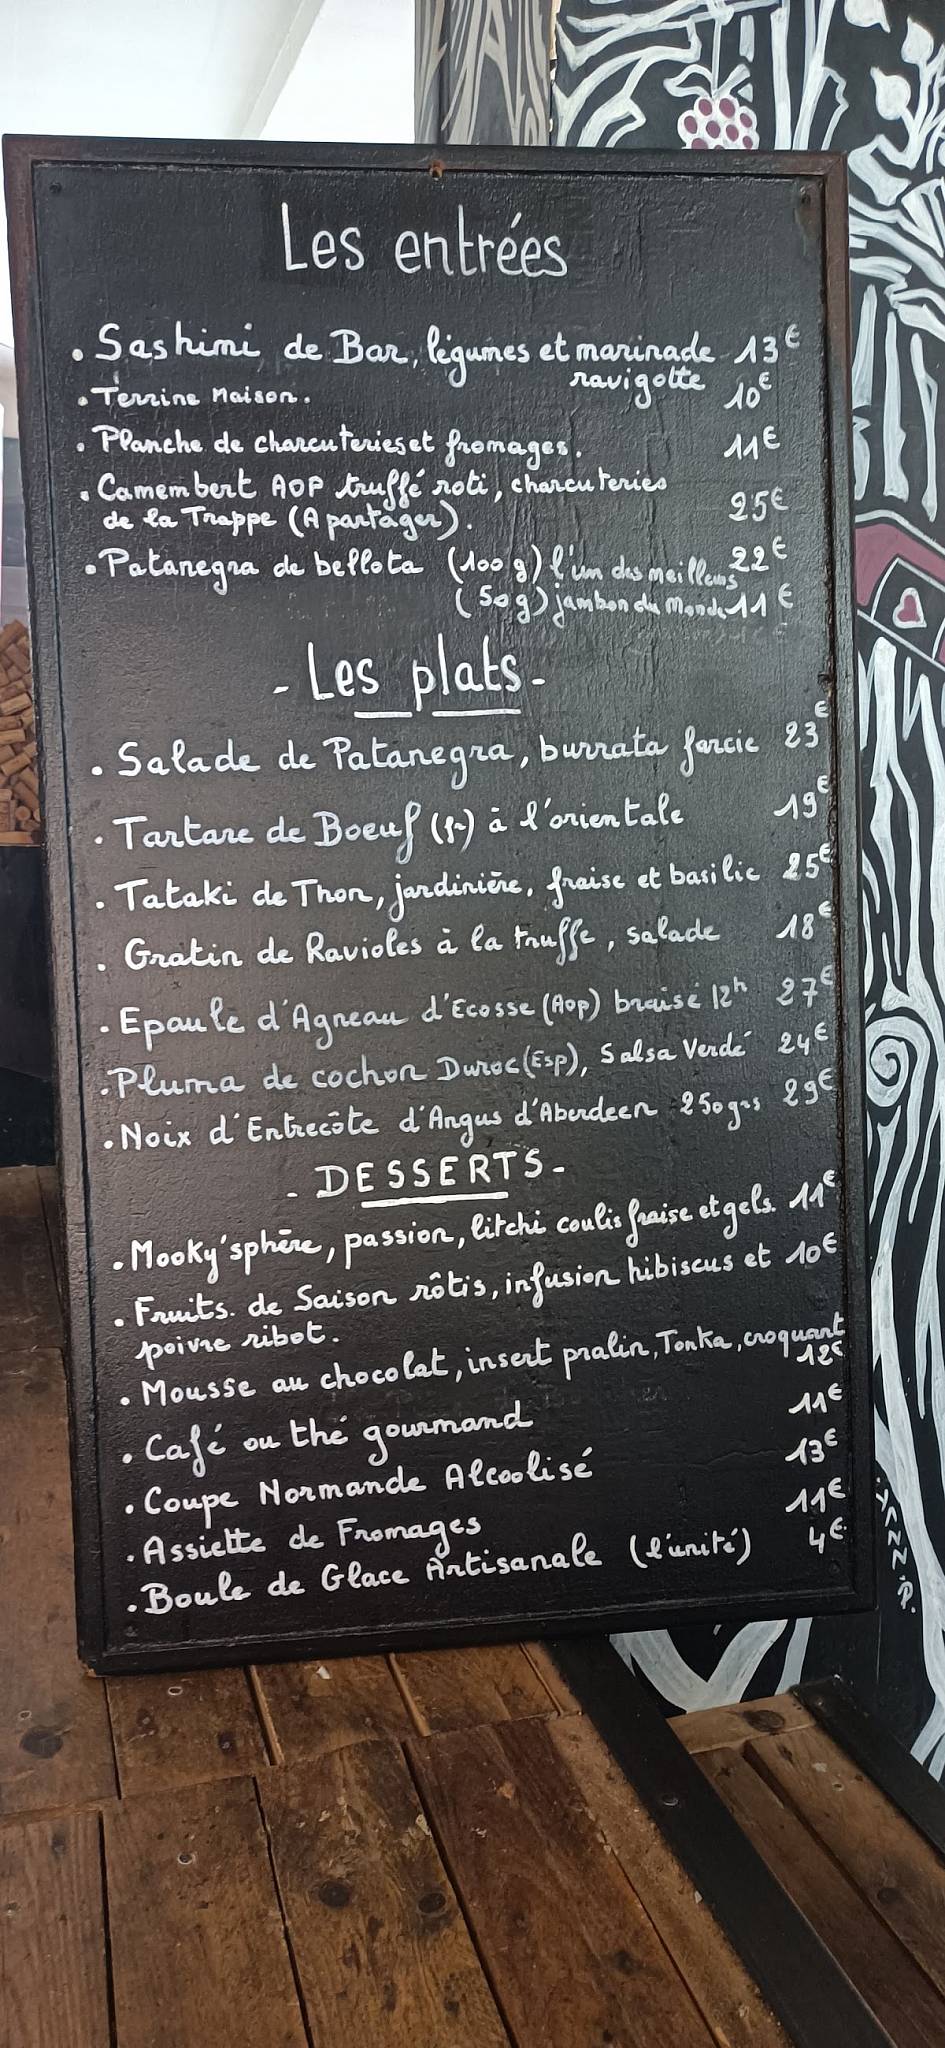 Les entrées
• Sashimi de Bar, légumes et marinade 13€
ravigotte
• Terrine Maison. 10€
• Planche de charcuteries et fromages. 11€
• Camembert AOP truffé roti, charcuteries
de la Trappe (A partager). 25€
• Patanegra de bellota (100 g) l'un des meilleurs 22€
(50 g) jambon du Monde 11€
- Les plats -
• Salade de Patanegra, burrata farcie 23€
• Tartare de Boeuf (fr) à l'orientale 19€
• Tataki de Thon, jardinière, fraise et basilic 25€
• Gratin de Ravioles à la truffe, salade 18€
• Epaule d'Agneau d'Ecosse (Aop) braisé 12h 27€
• Pluma de cochon Duroc (Esp), Salsa Verdé 24€
• Noix d'Entrecôte d'Angus d'Aberdeen 250grs 29€
- DESSERTS -
• Mooky'sphère, passion, litchi coulis fraise et gels. 11€
• Fruits. de Saison rôtis, infusion hibiscus et 10€
poivre ribot.
• Mousse au chocolat, insert pralin, Tonka, croquant
12€
• Café ou thé gourmand 11€
• Coupe Normande Alcoolisé 13€
• Assiette de Fromages 11€
• Boule de Glace Artisanale (l'unité) 4€